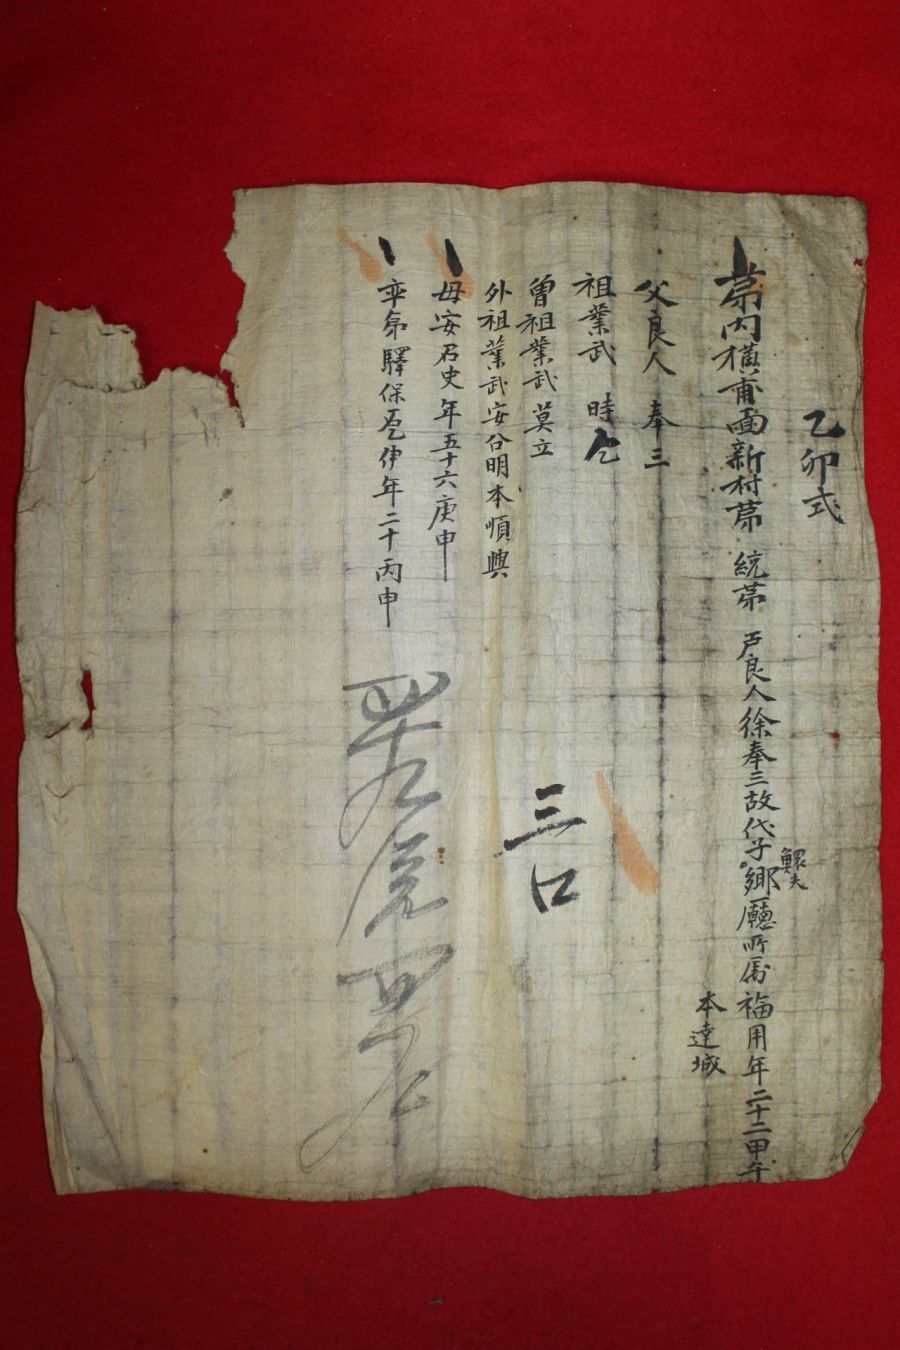 乙卯式
第內橫甫面新村第 統第 戶良人徐奉三故代子鄕廳所属福用年二十二甲午
鰥夫
本達城
父良人 奉三
祖業武 時
曾祖業武 莫立
外祖業武安公明本順興
母安召史年五十六庚申
率弟驛保 伊年二十丙申
三口